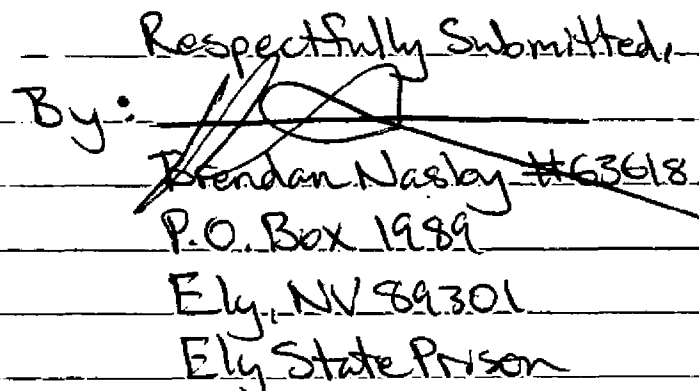 Respectfully Submitted,
By:
Brendan Nasby #63618
P.O. Box 1989
Ely, NV 89301
Ely State Prison